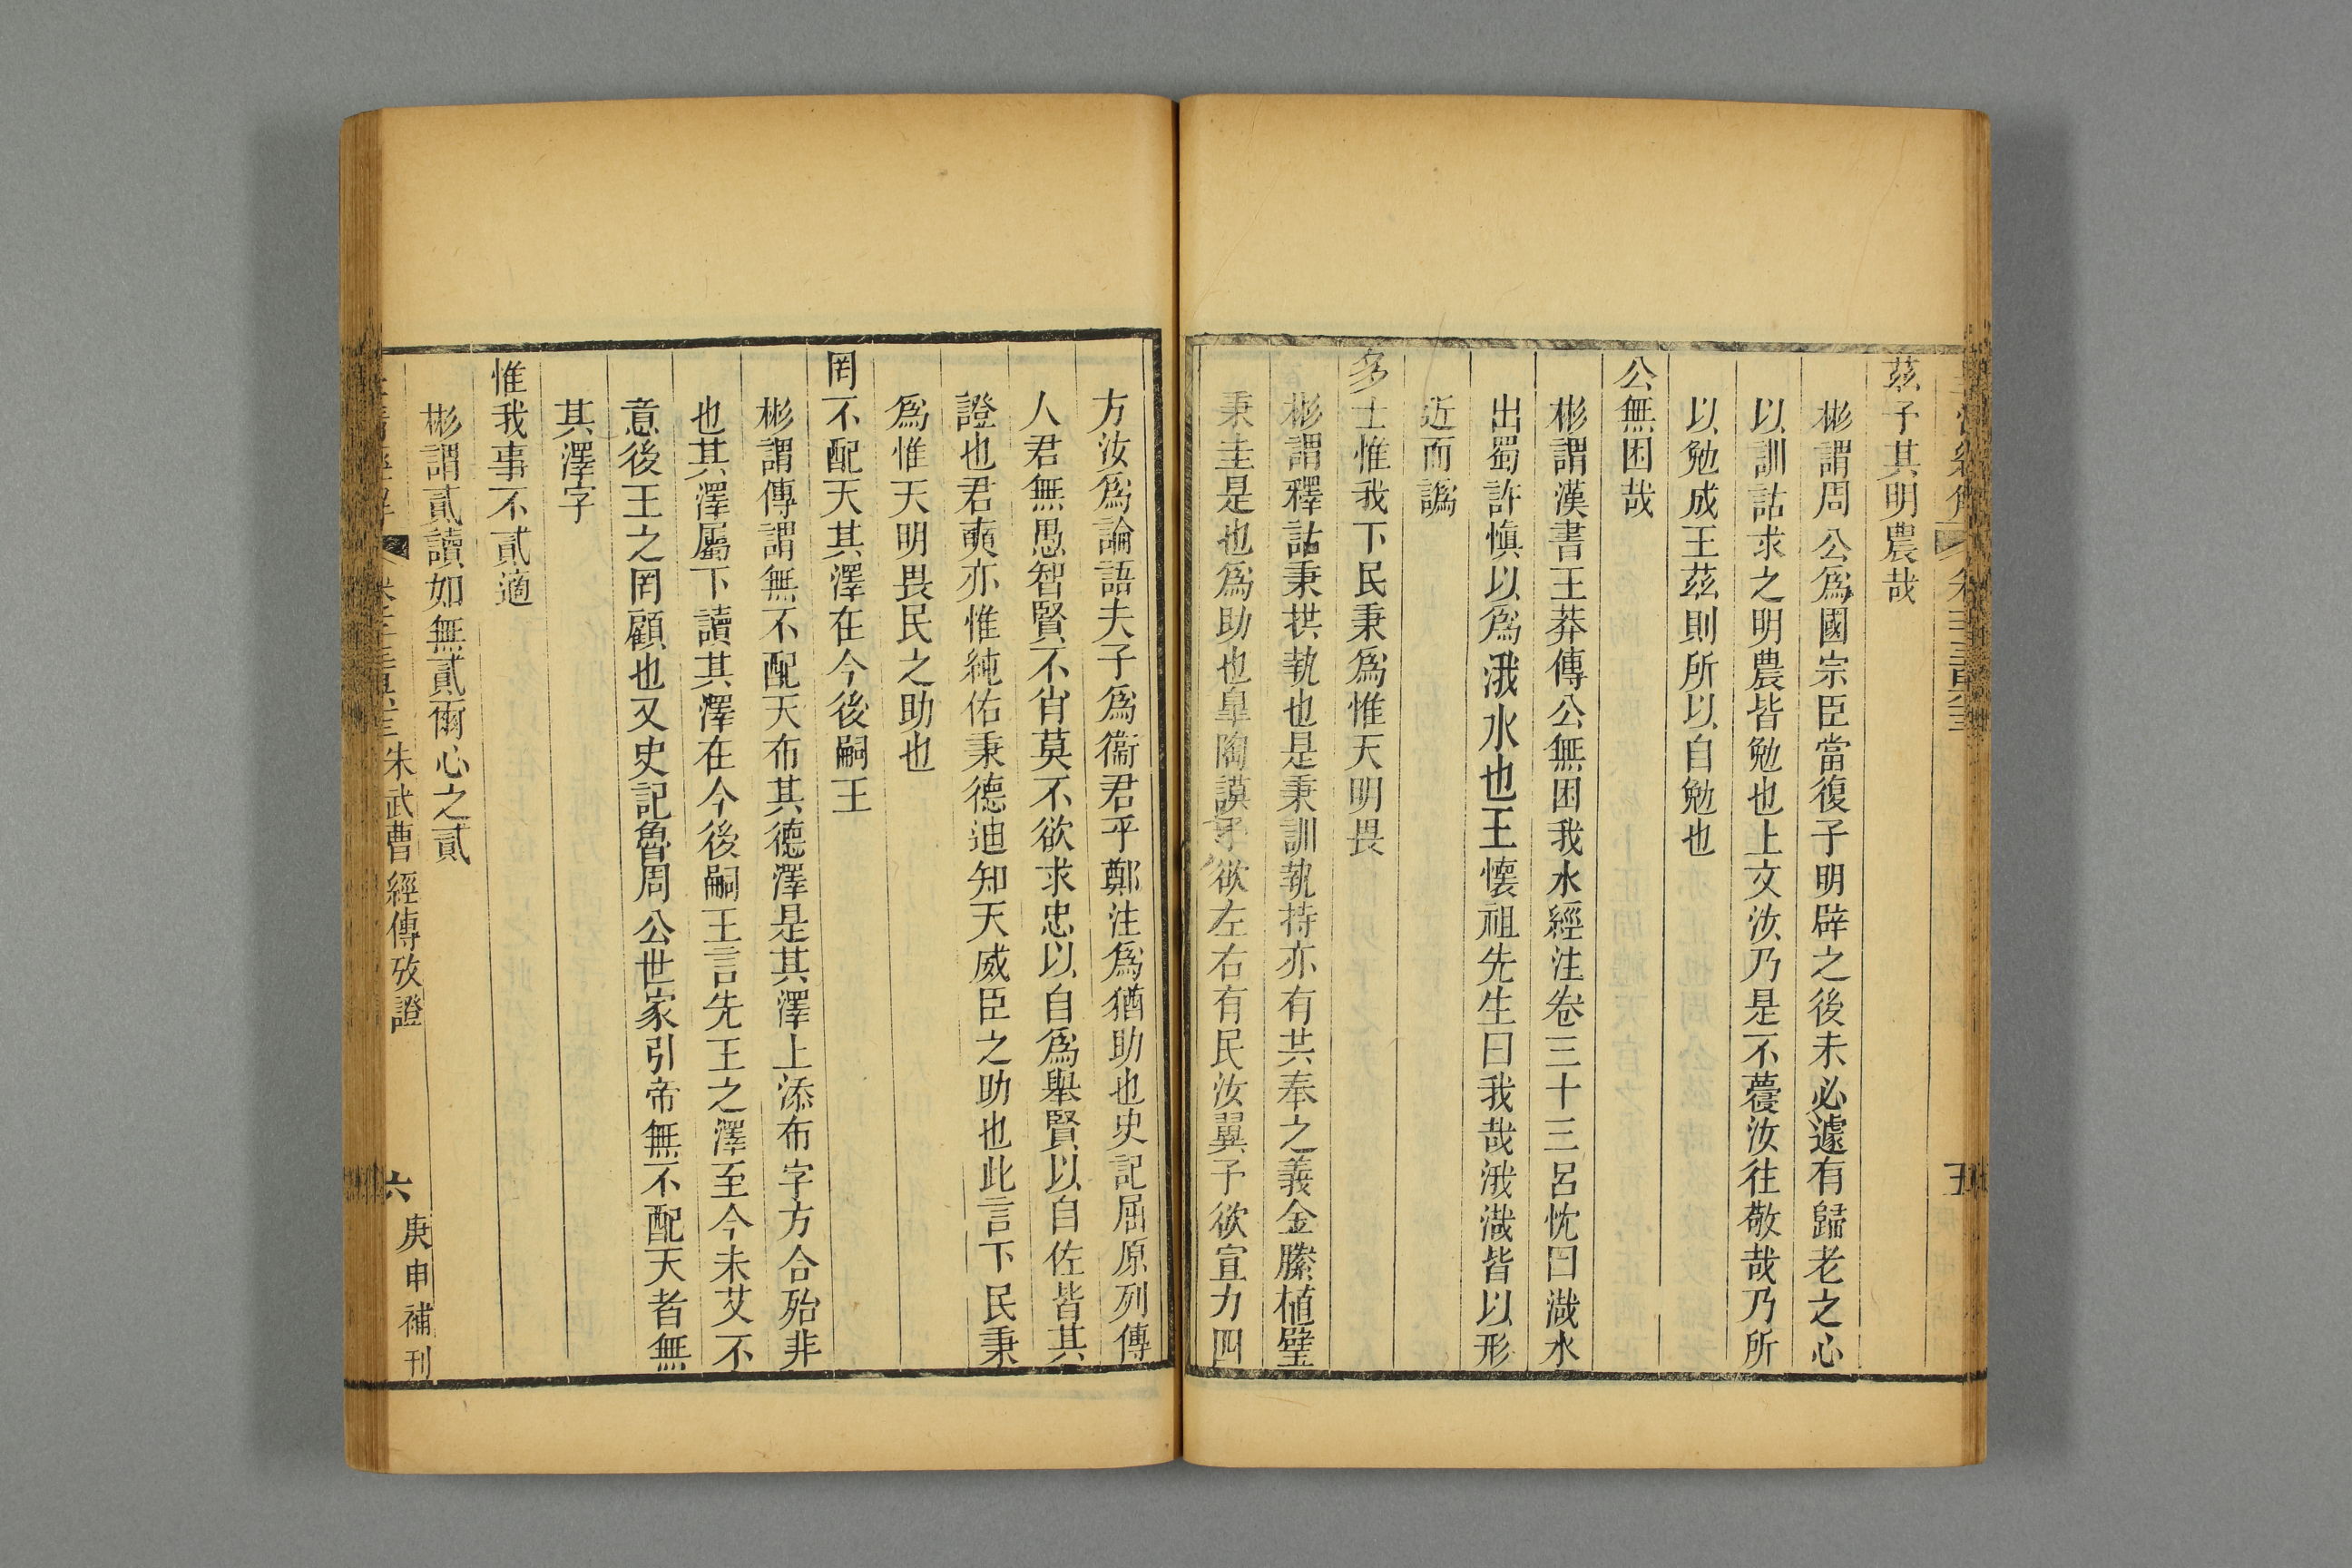 茲予其明農哉
彬謂周公爲國宗臣當復子明辟之後未必遽有歸老之心
以訓詁求之明農皆勉也上文汝乃是不蘉汝往敬哉乃所
以勉成王茲則所以自勉也
公無困哉
彬謂漢書王莽傳公無困我水經注卷三十三呂忱曰渽水
出蜀許愼以爲涐水也王懷祖先生曰我哉涐渽皆以形
近而譌
多士惟我下民秉爲惟天明畏
彬謂釋詁秉拱執也是秉訓執持亦有共奉之義金縢植璧
秉圭是也爲助也皐陶謨予欲左右有民汝翼予欲宣力四
方汝爲論語夫子爲衞君乎鄭注爲猶助也史記屈原列傳
人君無愚智賢不肖莫不欲求忠以自爲舉賢以自佐皆其
證也君奭亦惟純佑秉德迪知天威臣之助也此言下民秉
爲惟天明畏民之助也
罔不配天其澤在今後嗣王
彬謂傳謂無不配天布其德澤是其澤上添布字方合殆非
也其澤屬下讀其澤在今後嗣王言先王之澤至今未艾不
意後王之罔顧也又史記魯周公世家引帝無不配天者無
其澤字
惟我事不貳適
彬謂貳讀如無貳爾心之貳
朱武曹經傳攷證
六
庚申補刊